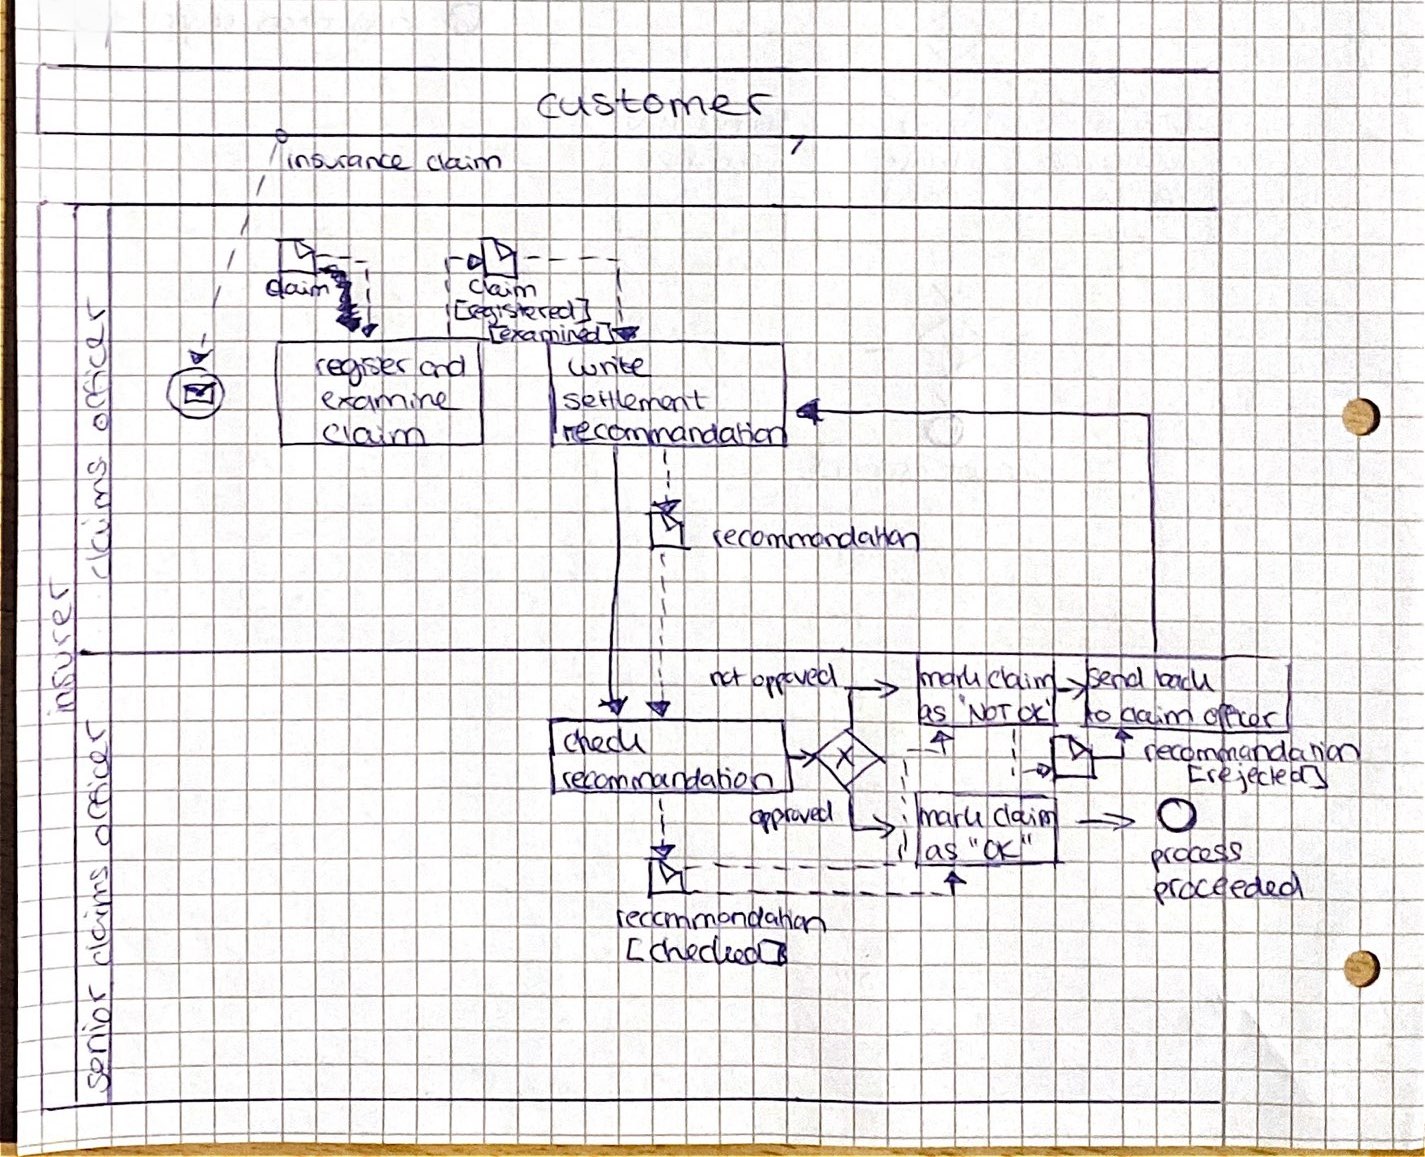 customer
insurance claim
insurer
claims officer
claim
claim
[registered]
[examined]
regiser and
examine
claim
write
settlement
recommandation
recommandation
senior claims officer
not appoved
mark claim
as "NOT OK"
send back
to claim officer
check
recommandation
X
recommandation
[rejected]
approved
mark claim
as "OK"
process
proceeded
recommandation
[checked]